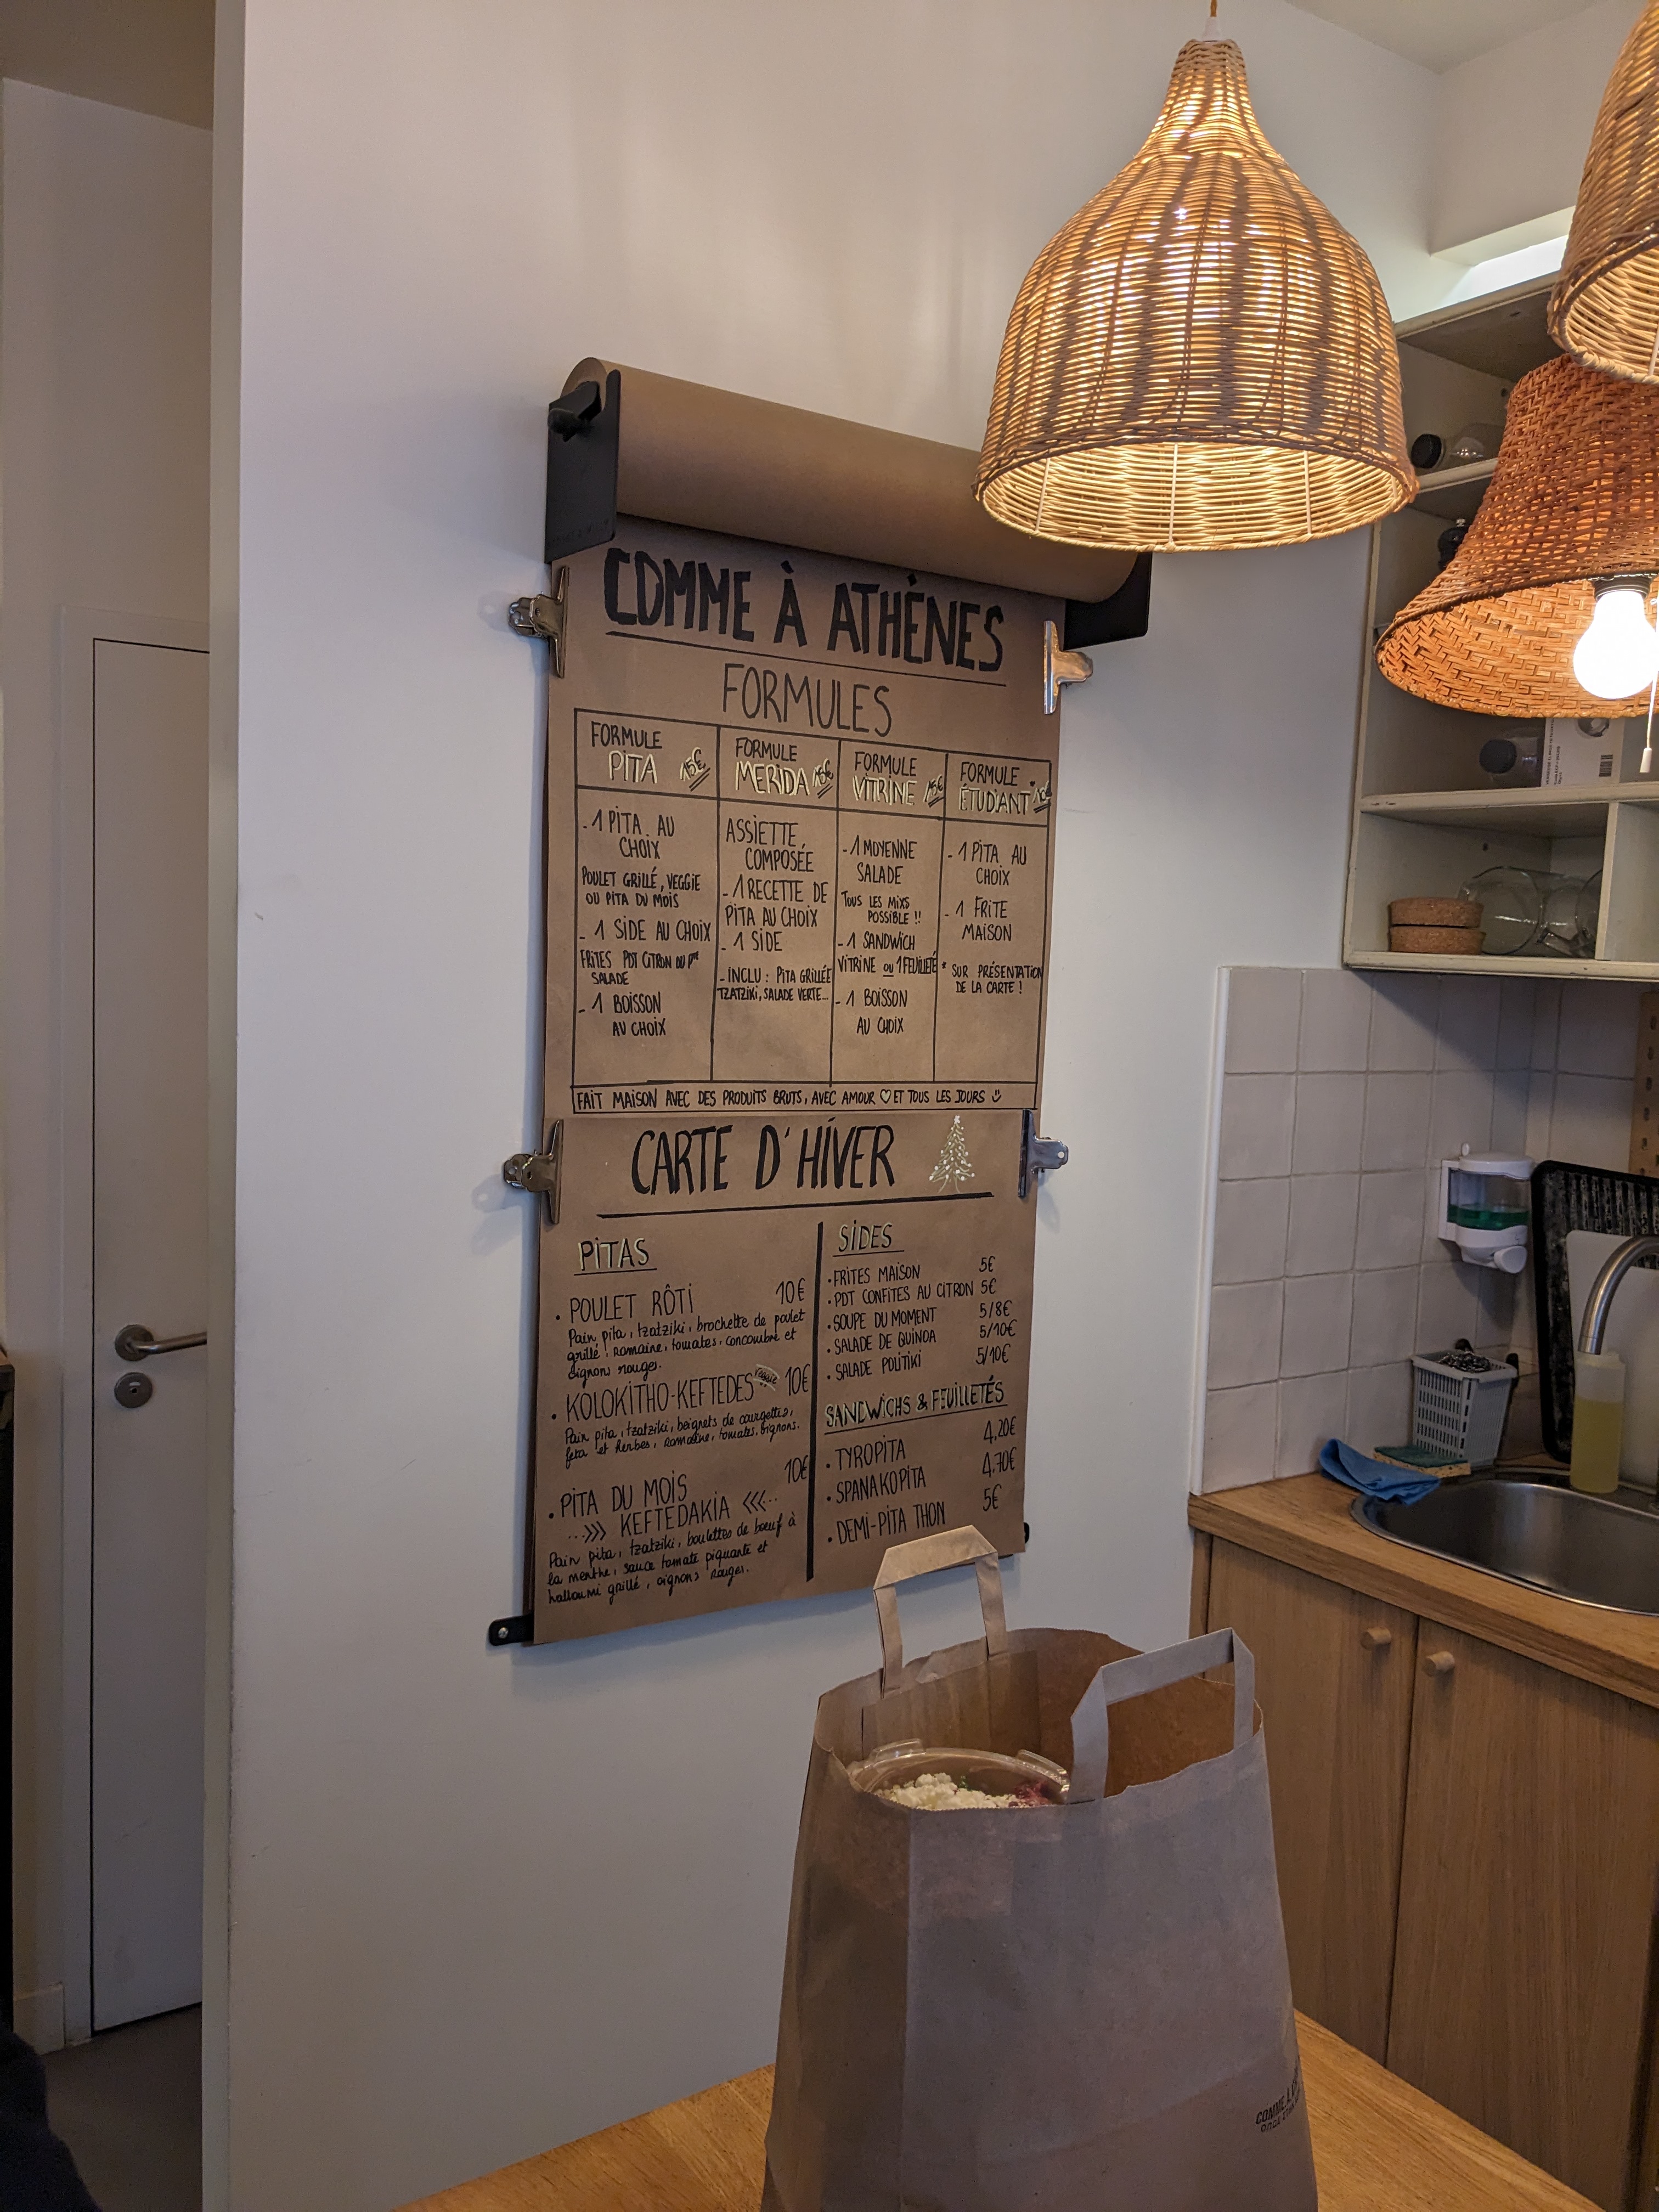 COMME À ATHÈNES
FORMULES
FORMULE
PITA 15€
- 1 PITA AU
CHOIX
POULET GRILLÉ, VEGGIE
OU PITA DU MOIS
- 1 SIDE AU CHOIX
FRITES PDT CITRON OU Pte
SALADE
- 1 BOISSON
AU CHOIX
FORMULE
MERIDA 15€
ASSIETTE
COMPOSÉE
- 1 RECETTE DE
PITA AU CHOIX
- 1 SIDE
- INCLU : PITA GRILLÉE
TZATZIKI, SALADE VERTE...
FORMULE
VITRINE 15€
- 1 MOYENNE
SALADE
TOUS LES MIXS
POSSIBLE !!
- 1 SANDWICH
VITRINE OU 1 FEUILLETÉ
- 1 BOISSON
AU CHOIX
FORMULE
ÉTUDIANT*
- 1 PITA AU
CHOIX
- 1 FRITE
MAISON
* SUR PRÉSENTATION
DE LA CARTE !
FAIT MAISON AVEC DES PRODUITS BRUTS, AVEC AMOUR ♡ ET TOUS LES JOURS
CARTE D'HIVER
PITAS
• POULET RÔTI 10€
Pain pita, tzatziki, brochette de poulet
grillé, romaine, tomates, concombre et
oignons rouges.
• KOLOKITHO-KEFTEDES veggie 10€
Pain pita, tzatziki, beignets de courgettes,
feta et herbes, romaine, tomates, oignons.
• PITA DU MOIS 10€
...>>> KEFTEDAKIA <<<...
Pain pita, tzatziki, boulettes de boeuf à
la menthe, sauce tomate piquante et
halloumi grillé, oignons rouges.
SIDES
• FRITES MAISON 5€
• PDT CONFITES AU CITRON 5€
• SOUPE DU MOMENT 5/8€
• SALADE DE QUINOA 5/10€
• SALADE POLITIKI 5/10€
SANDWICHS & FEUILLETÉS
• TYROPITA 4,20€
• SPANAKOPITA 4,70€
• DEMI-PITA THON 5€
COMME À